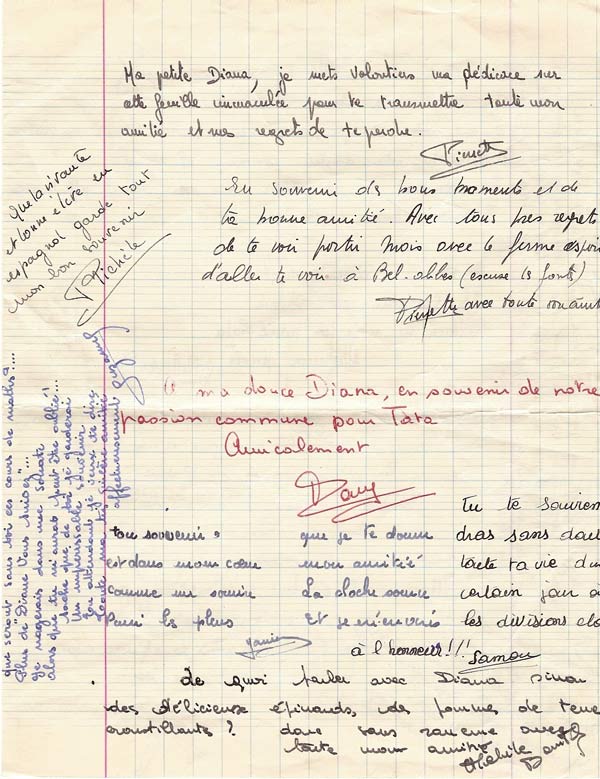 Ma petite Diana, je mets volontiers ma dédicace sur
cette feuille immaculée pour te transmettre toute mon
amitié et mes regrets de te perdre.
En souvenir des bons moments et de
ta bonne amitié. Avec tous mes regrets
de te voir partir mais avec le ferme espoir
d'aller te voir à Bel-abbes (excuse les fautes)
Pierrette avec toute son amit
Que la vivante
et bonne élève en
espagnol garde tout
mon bon souvenir
Michèle
O ma douce Diana, en souvenir de notre
passion commune pour Tata
Amicalement
Dany
que serait sans toi ces cours de maths?....
Plus de "Diane Vous suivez"....
Je nagerais dans une solitude
alors que tu m'auras peut être oublié....
sache que de toi je garderai
Un impérissable souvenir
En attendant je veux te dire
toute ma très sincère amitié
affectueusement Suzanne
ton souvenir
est dans mon cœur
comme un sourire
Parmi les pleurs
que je te donne
mon amitié
La cloche sonne
et je m'enivrais
Tu te souvien
dras sans dout
toute ta vie d'un
certain jour où
les divisions
à l'honneur!!!
De quoi parler avec Diana sinon
des délicieux épinards, des pommes de terre
croustillantes? donc sans rancune avec
toute mon amitié